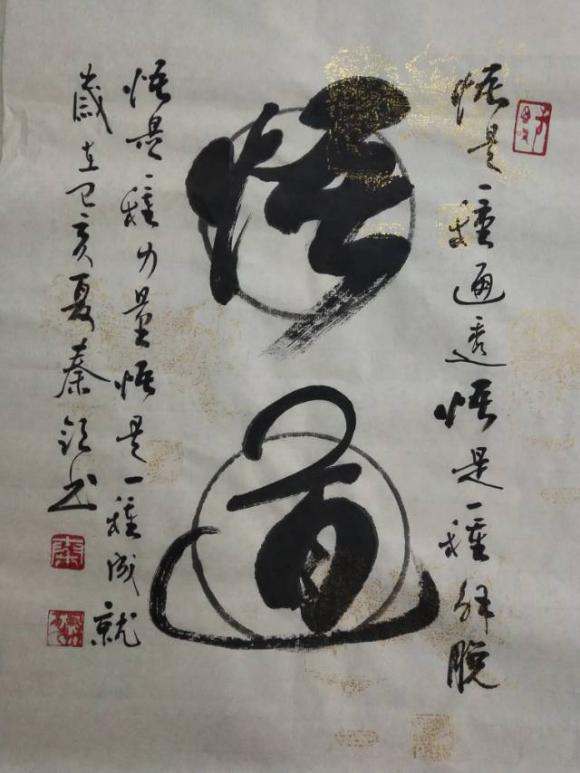 悟道
悟是一種通透悟是一種解脫
悟是一種力量悟是一種成就
歲在己亥夏秦领书
秦